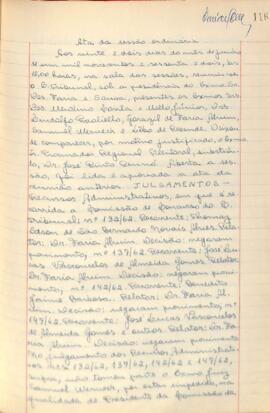 118
Ata da sessão ordinária
Aos vinte e dois dias do mês de
de um mil novecentos e sessenta e dois, às
horas, na sala das sessões, reuniu-se
o E. Tribunal, sob a presidência do Exmo. Sr.
Des. Faria e Sousa, presentes os Exmos. Srs.
Des. Merolino Corrêa e Mello Júnior, Drs.
Lindolfo Paoliello, de Faria Alvim,
Samuel Werneck e de Rezende. Deixou
de comparecer, por motivo justificado, o Exmo.
Sr. Procurador Regional Eleitoral, substituto,
Dr. José Pinto Aberta a ses-
são, foi lida e aprovada a ata da
reunião anterior. JULGAMENTOS -
Recursos Administrativos, em que é re-
corrida a Comissão de Concurso do E.
Tribunal: nº 132/62. Recorrente: Thomaz
Edson de São Bernardo Novais Alves. Rela-
tor: Dr. Faria Alvim. Decisão: negaram
provimento, nº 139/62. Recorrente: José Lucas
Vasconcelos de Almeida Gomes. Relator:
Dr. Faria Alvim. Decisão: negaram provi-
mento, nº 142/62. Recorrente: Benedito
Jaime Barbosa. Relator: Dr. Faria Al-
vim. Decisão: negaram provimento, nº
149/62. Recorrente: José Lucas Vasconcelos
de Almeida Gomes e outros. Relator: Dr. Fa-
ria Alvim. Decisão: negaram provimento.
No julgamento dos Recursos Administrati-
vos nºs 132/62, 139/62, 142/62 e 149/62,
supra, não tomou parte o Exmo. Juiz
Samuel Werneck, por estar impedido, na
qualidade de Presidente da Comissão de